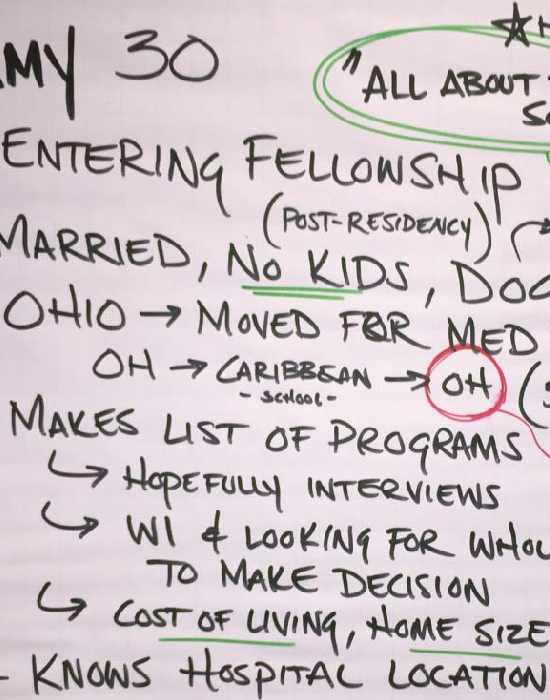 MY 30
★
"ALL ABOUT
ENTERING FELLOWSHIP
(POST-RESIDENCY)
MARRIED, NO KIDS, DOC
OHIO → MOVED FOR MED
OH → CARIBBEAN → OH (
- SCHOOL -
MAKES LIST OF PROGRAMS
↳ HOPEFULLY INTERVIEWS
↳ WI & LOOKING FOR WHOL
TO MAKE DECISION
↳ COST OF LIVING, HOME SIZE
- KNOWS HOSPITAL LOCATION